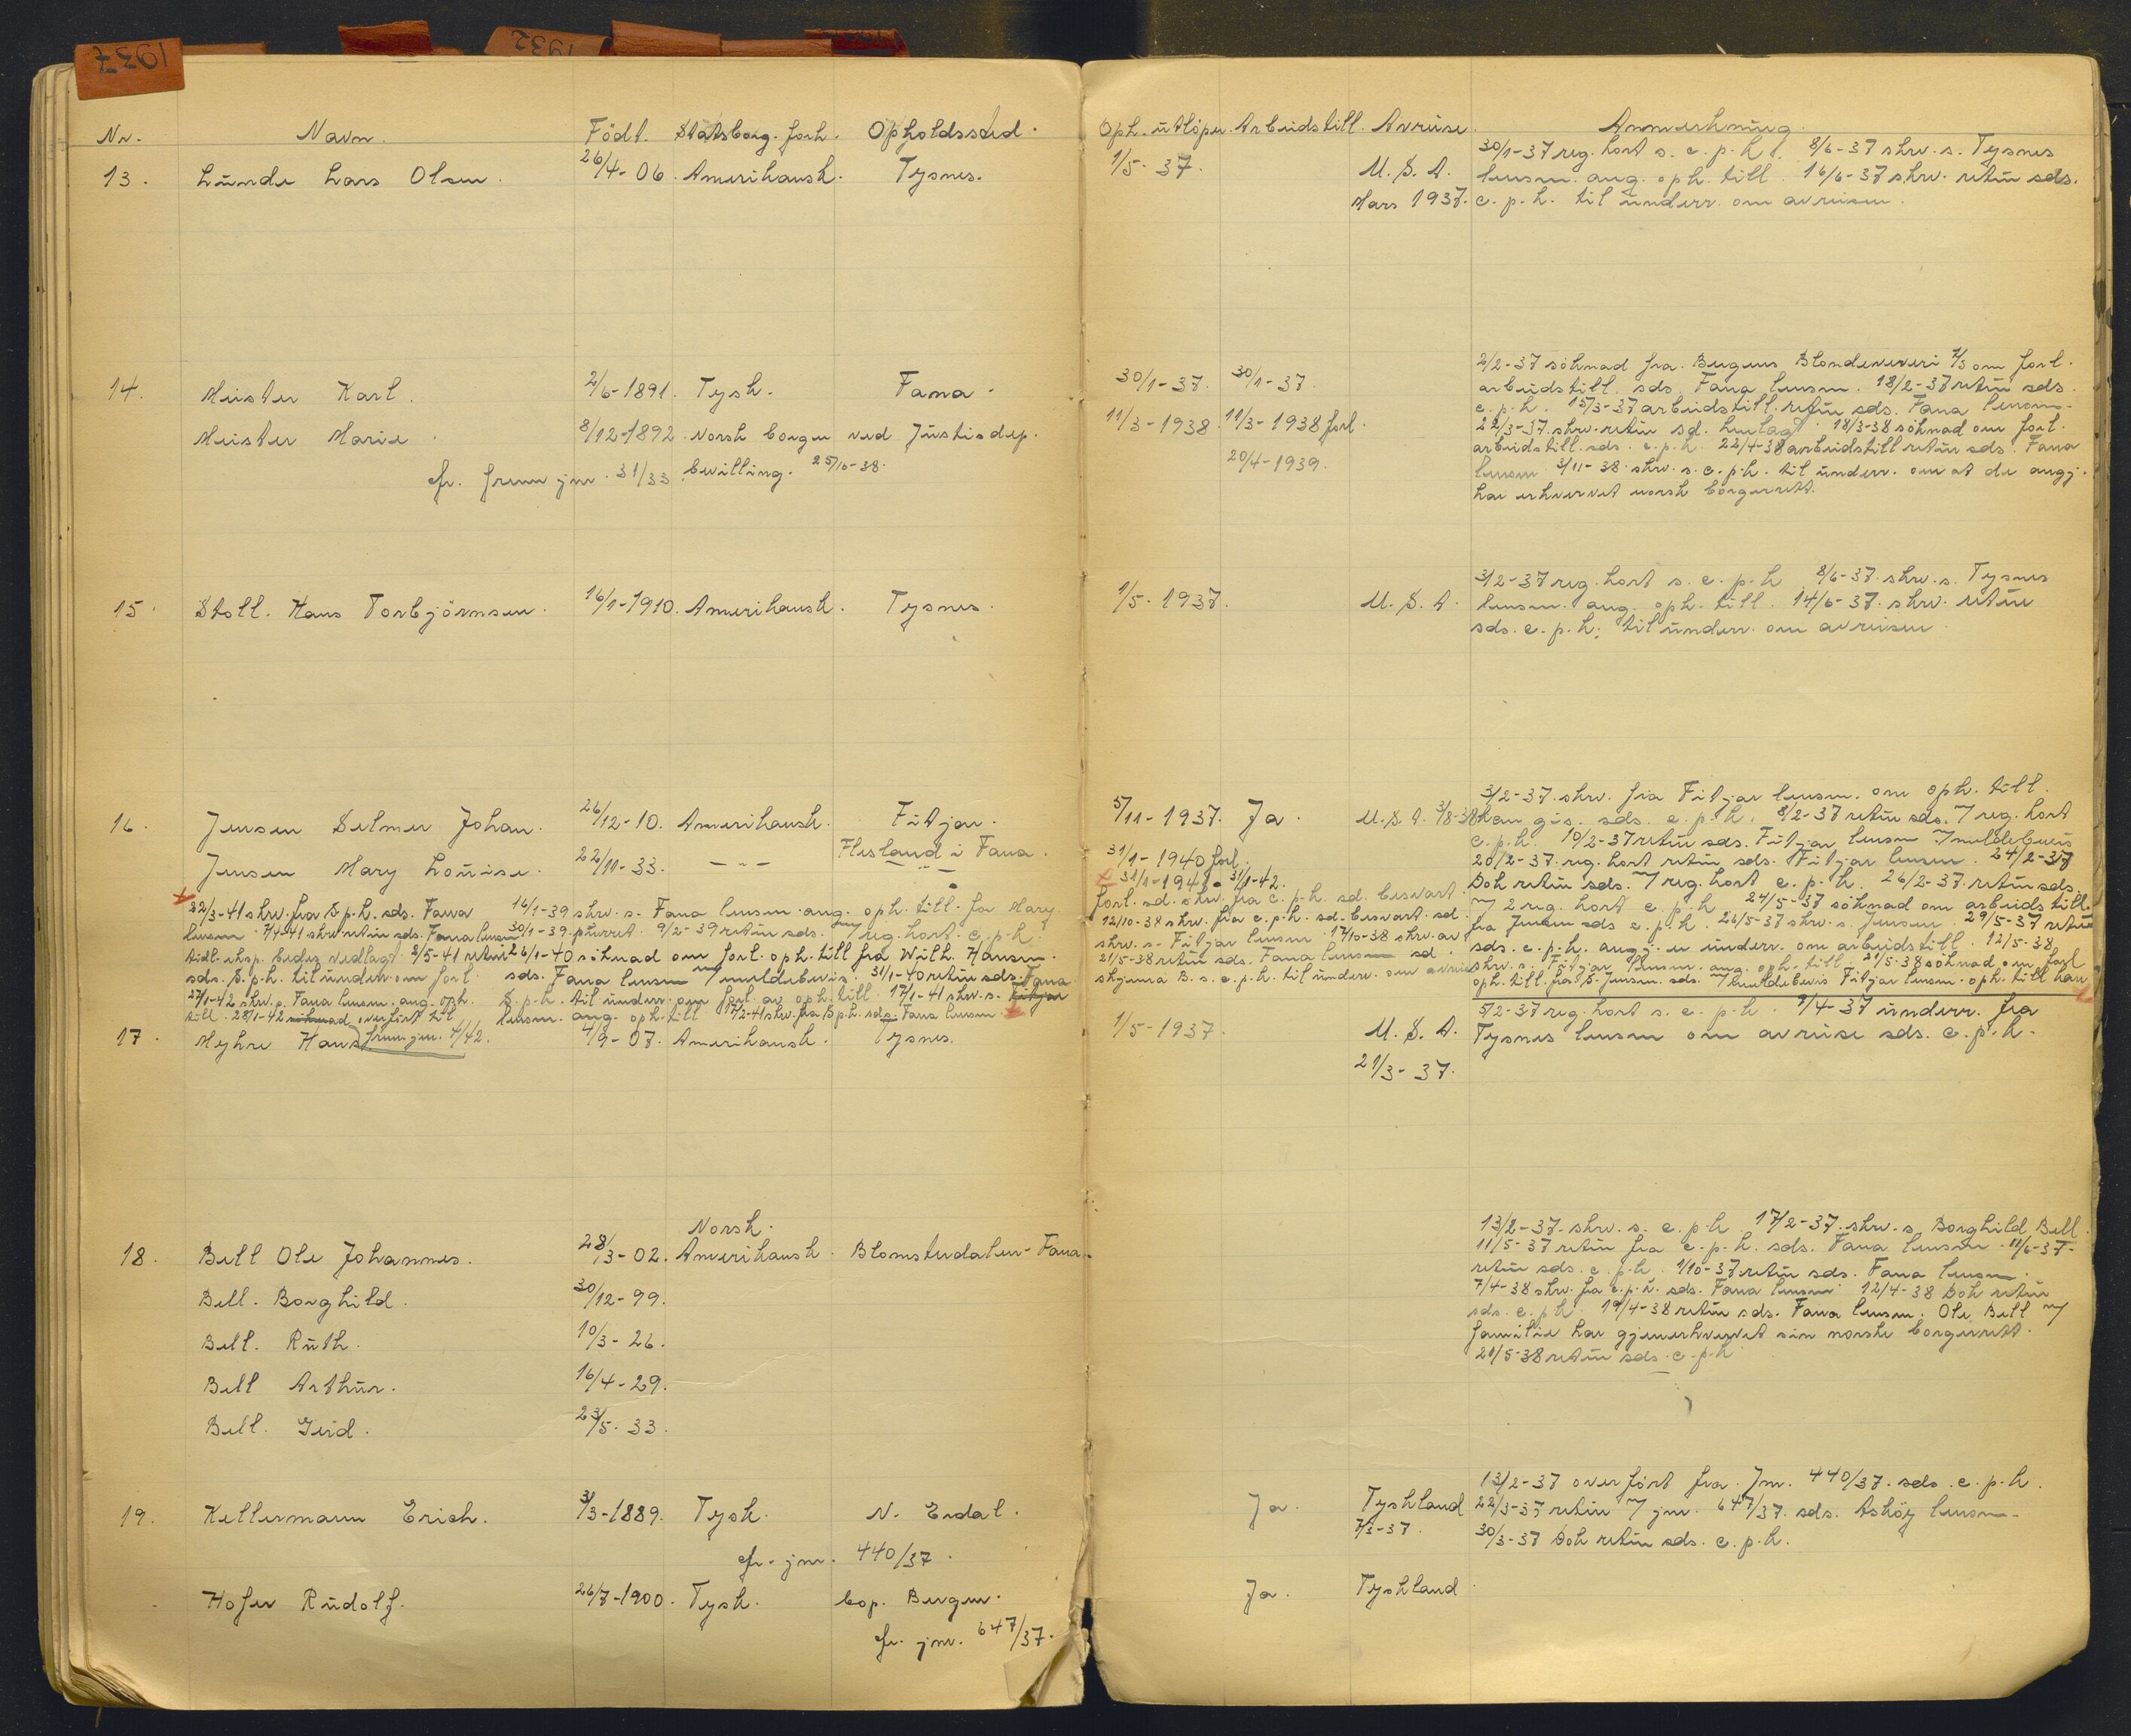 1937
1932
Nr. Navn. Födt. Statsborg. forh. Opholdssted.
13. Lunde Lars Olsen. 26/4-06. Amerikansk. Tysnes.
14. Meister Karl. 2/6-1891. Tysk. Fana.
Meister Marie. 8/12-1892. Norsk borger ved Justisdep.
cfr. fremm jnr. 31/33 bevilling. 25/10-38.
15. Stoll. Hans Torbjörnsen. 16/1-1910. Amerikansk. Tysnes.
16. Jensen Selmer Johan. 26/12-10. Amerikansk. Fitjar.
Flesland i Fana.
Jensen Mary Louise. 22/11-33. — " — — " —
22/3-41 skrv. fra S.p.k. sds. Fana 16/1-39 skrv. s. Fana lensm. ang. oph. till. for Mary.
lensm. 7/4-41 skrv. retur sds. Fana lensm 30/1-39. purret. 9/2-39 retur sds. m/ reg. kort. c.p.k.
tidl. eksp. bedes vedlagt. 2/5-41 retur 26/1-40 söknad om forl. oph. till fra With. Hansen.
sds. S.p.k. til underr. om forl. sds. Fana lensm m/meldebevis. 31/1-40 retur sds. Fana
27/1-42 skrv. s. Fana lensm. ang. oph. S.p.k. til underr. om forl. av oph. till. 17/1-41 skrv. s. Fitjar
till. 28/1-42 söknad overfört til lensm. ang. oph. till 17/2-41 skrv. fra S.p.k. sds. Fana lensm.
17. Myhre Hans. frem. jnr. 4/42. 4/9-07. Amerikansk. Tysnes.
Norsk.
18. Bell Ole Johannes. 28/3-02. Amerikansk. Blomsterdalen - Fana.
Bell. Borghild. 30/12-99.
Bell. Ruth. 10/3-26.
Bell Arthur. 16/4-29.
Bell. Gerd. 23/5-33.
19. Kellermann Erich. 3/3-1889. Tysk. N. Erdal.
cfr. jnr. 440/37.
Hofer Rudolf. 26/7-1900. Tysk. bop. Bergen.
cfr. jnr. 647/37.
Oph. utlöper. Arbeidstill. Avreise. Anmerkning.
1/5-37. 30/1-37 reg. kort s. c.p.k. 8/6-37 skrv. s. Tysnes
U.S.A. lensm. ang. oph. till. 16/6-37 skrv. retur sds.
Mars 1937. c.p.k. til underr. om avreisen.
2/2-37 söknad fra Bergens Blondeveveri A/S om forl.
30/1-37. 30/1-37. arbeidstill. sds. Fana lensm. 18/2-37 retur sds.
c.p.k. 15/3-37 arbeidstill. retur sds. Fana lensm.
11/3-1938. 11/3-1938 forl. 22/3-37. skrv. retur sd. henlagt. 18/3-38 söknad om forl.
arbeidstill. sds. c.p.k. 22/4-38 arbeidstill retur sds. Fana
20/4-1939. lensm. 3/11-38. skrv. s. c.p.k. til underr. om at de angj.
har erhvervet norsk borgerrett.
3/2-37 reg. kort s. c.p.k. 8/6-37. skrv. s. Tysnes
1/5-1937. U.S.A. lensm. ang. oph. till. 14/6-37. skrv. retur
sds. c.p.k. til underr. om avreisen.
3/2-37. skrv. fra Fitjar lensm. om oph. till.
5/11-1937. Ja. U.S.A. 3/8-38 sds. c.p.k. 8/2-37 retur sds. m/ reg. kort
c.p.k. 10/2-37 retur sds. Fitjar lensm m/meldebevis
31/1-1940 forl. 20/2-37. reg. kort retur sds. Fitjar lensm. 24/2-37
31/1-1941. 31/1-42. Dok retur sds. m/ reg. kort c.p.k. 26/2-37. retur sds.
forl. sd. skrv. fra c.p.k. sd. besvart. m/ 2 reg. kort c.p.k. 24/5-37 söknad om arbeidstill.
12/10-38 skrv. fra c.p.k. sd. besvart. sd. fra Jensen sds c.p.k. 26/5-37 skrv. s. Jensen. 29/5-37 retur
skrv. s. Fitjar lensm. 17/10-38 skrv. av sds. c.p.k. angj. er underr. om arbeidstill. 12/5-38
21/5-38 retur sds. Fana lensm sd. skrv. s. Fitjar lensm. ang. oph. till. 21/5-38 söknad om forl
skjema B. s. c.p.k. til underr. om avreise oph. till. fra S. Jensen. sds. m/meldebevis Fitjar lensm. oph. till kan
5/2-37 reg. kort s. c.p.k. 9/4-37 underr. fra
1/5-1937. U.S.A. Tysnes lensm om avreise sds. c.p.k.
21/3-37.
13/2-37. skrv. s. c.p.k. 17/2-37. skrv. s. Borghild Bell.
11/5-37 retur fra c.p.k. sds. Fana lensm. 11/6-37.
retur sds. c.p.k. 1/10-37 retur sds. Fana lensm.
7/4-38 skrv. fra c.p.k. sds. Fana lensm. 12/4-38 Dok retur
sds. c.p.k. 19/4-38 retur sds. Fana lensm. Ole Bell m/
familie har gjenerhvervet sin norske borgerrett.
21/5-38 retur sds. c.p.k.
13/2-37 overfört fra Jnr. 440/37. sds. c.p.k.
Ja. Tyskland 22/3-37 retur m/ jnr. 647/37. sds. Asköy lensm.
7/3-37. 30/3-37 Dok retur sds. c.p.k.
Ja. Tyskland.